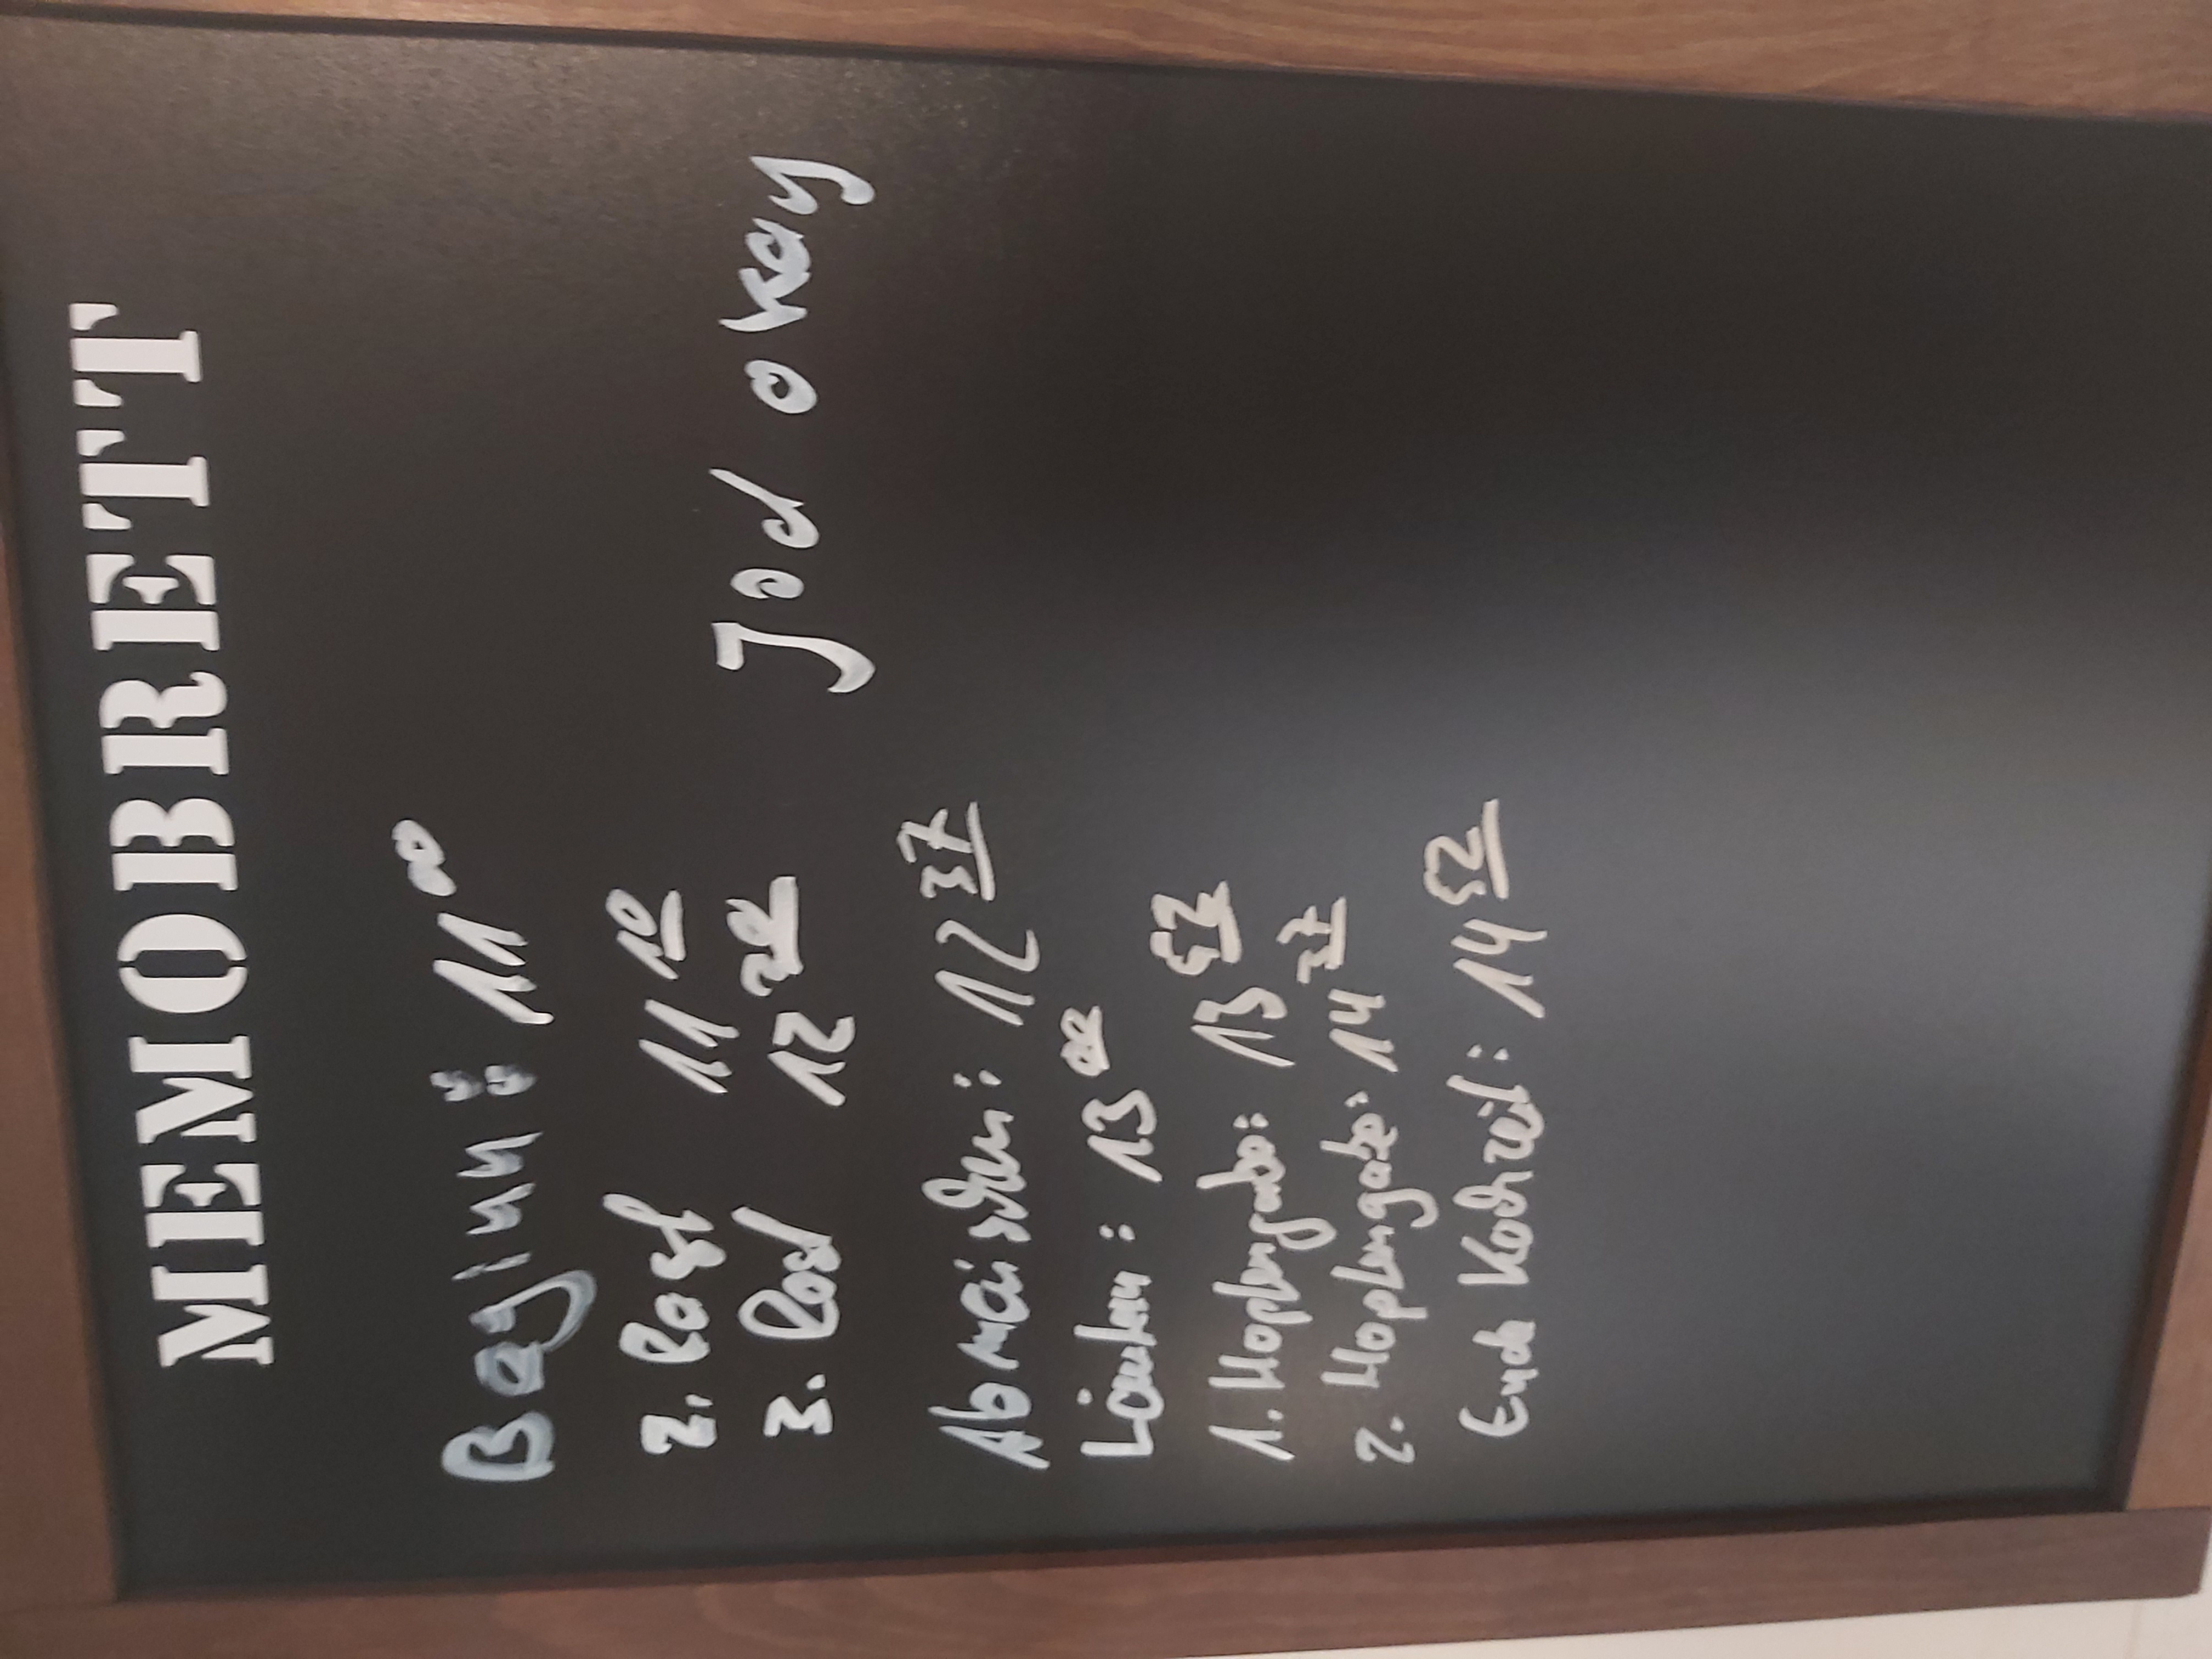 MEMOBRETT
Beginn: 11⁰⁰
2. Rast 11¹⁰
3. Rast 12²⁰ Jod okay
Abmaischen: 12³⁷
Läutern: 13⁰⁰
1. Hopfengabe: 13⁵²
2. Hopfengabe: 14³⁷
Ende Kochzeit: 14⁵²